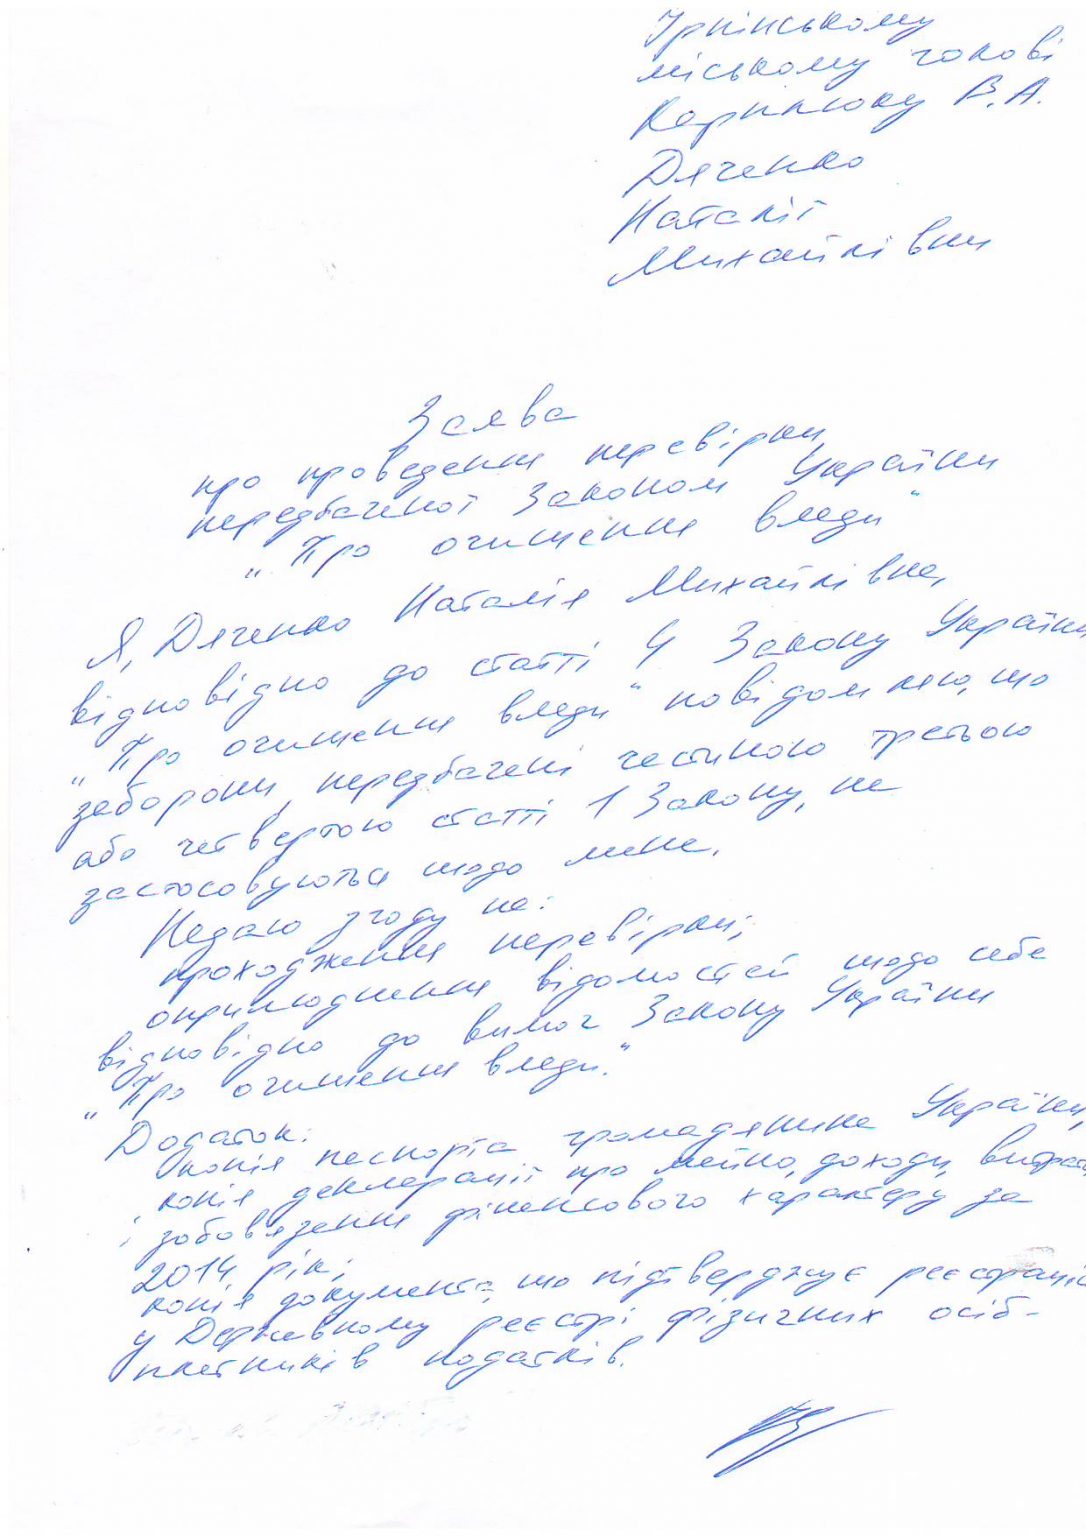 Ірпінському
міському голові
Карплюку В.А.
Дяченко
Наталії
Михайлівни
Заява
про проведення перевірки,
передбаченої Законом України
„Про очищення влади"
Я, Дяченко Наталія Михайлівна,
відповідно до статті 4 Закону України
„Про очищення влади" повідомляю, що
заборони, передбачені частиною третьою
або четвертою статті 1 Закону, не
застосовуються щодо мене.
Надаю згоду на:
проходження перевірки;
оприлюднення відомостей щодо себе
відповідно до вимог Закону України
„Про очищення влади."
Додаток:
копія паспорта громадянина України,
копія декларації про майно, доходи, витрати
і зобов'язання фінансового характеру за
2014 рік;
копія документа, що підтверджує реєстрацію
у Державному реєстрі фізичних осіб-
платників податків.